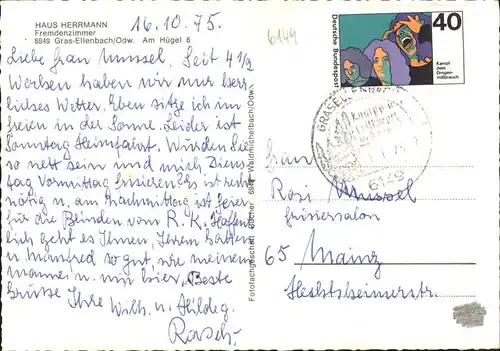 HAUS HERRMANN
Fremdenzimmer
6949 Gras-Ellenbach/Odw. Am Hügel 6
16.10.75.
6149
Liebe Frau Mussel, Seit 4 1/2
Wochen haben wir nur herr-
liches Wetter. Eben sitze ich im
freien in der Sonne. Leider ist
Sonntag Heimfahrt. Würden Sie
so nett sein und mich Diens-
tag Vormittag frisieren? Es ist sehr
nötig u. am Nachmittag ist Feier
für die Blinden vom R.K. Hoffent-
lich geht es Ihnen, Ihrem Gatten
u. Manfred so gut wie meinem
Manne u. mir hier. Beste
Grüsse Ihre Wilh. u. Hildeg.
Rasch.
Fotofachgeschäft Bücher 6948 Waldmichelbach/Odw.
Deutsche Bundespost
40
Kampf
dem
Drogen-
mißbrauch
GRASELLENBACH
6149
Frau
Rosi Mussel
Frisiersalon
65 Mainz
Hechtsheimerstr.